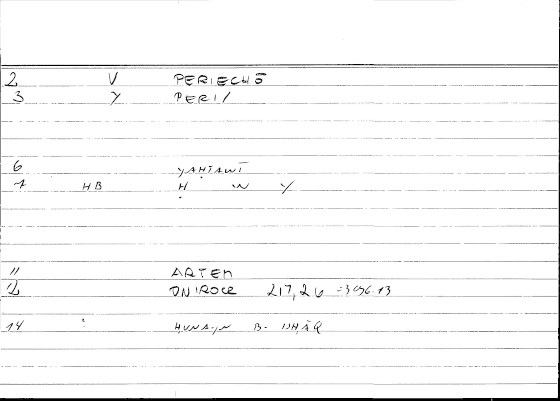 2 V PERIECHŌ
3 Y PERI/
6 YAḤTAWĪ
7 HB Ḥ W Y
11 ARTEM
12 ONIROCR 217,26 = 396.13
14 : ḤUNAYN B. ISḤĀQ